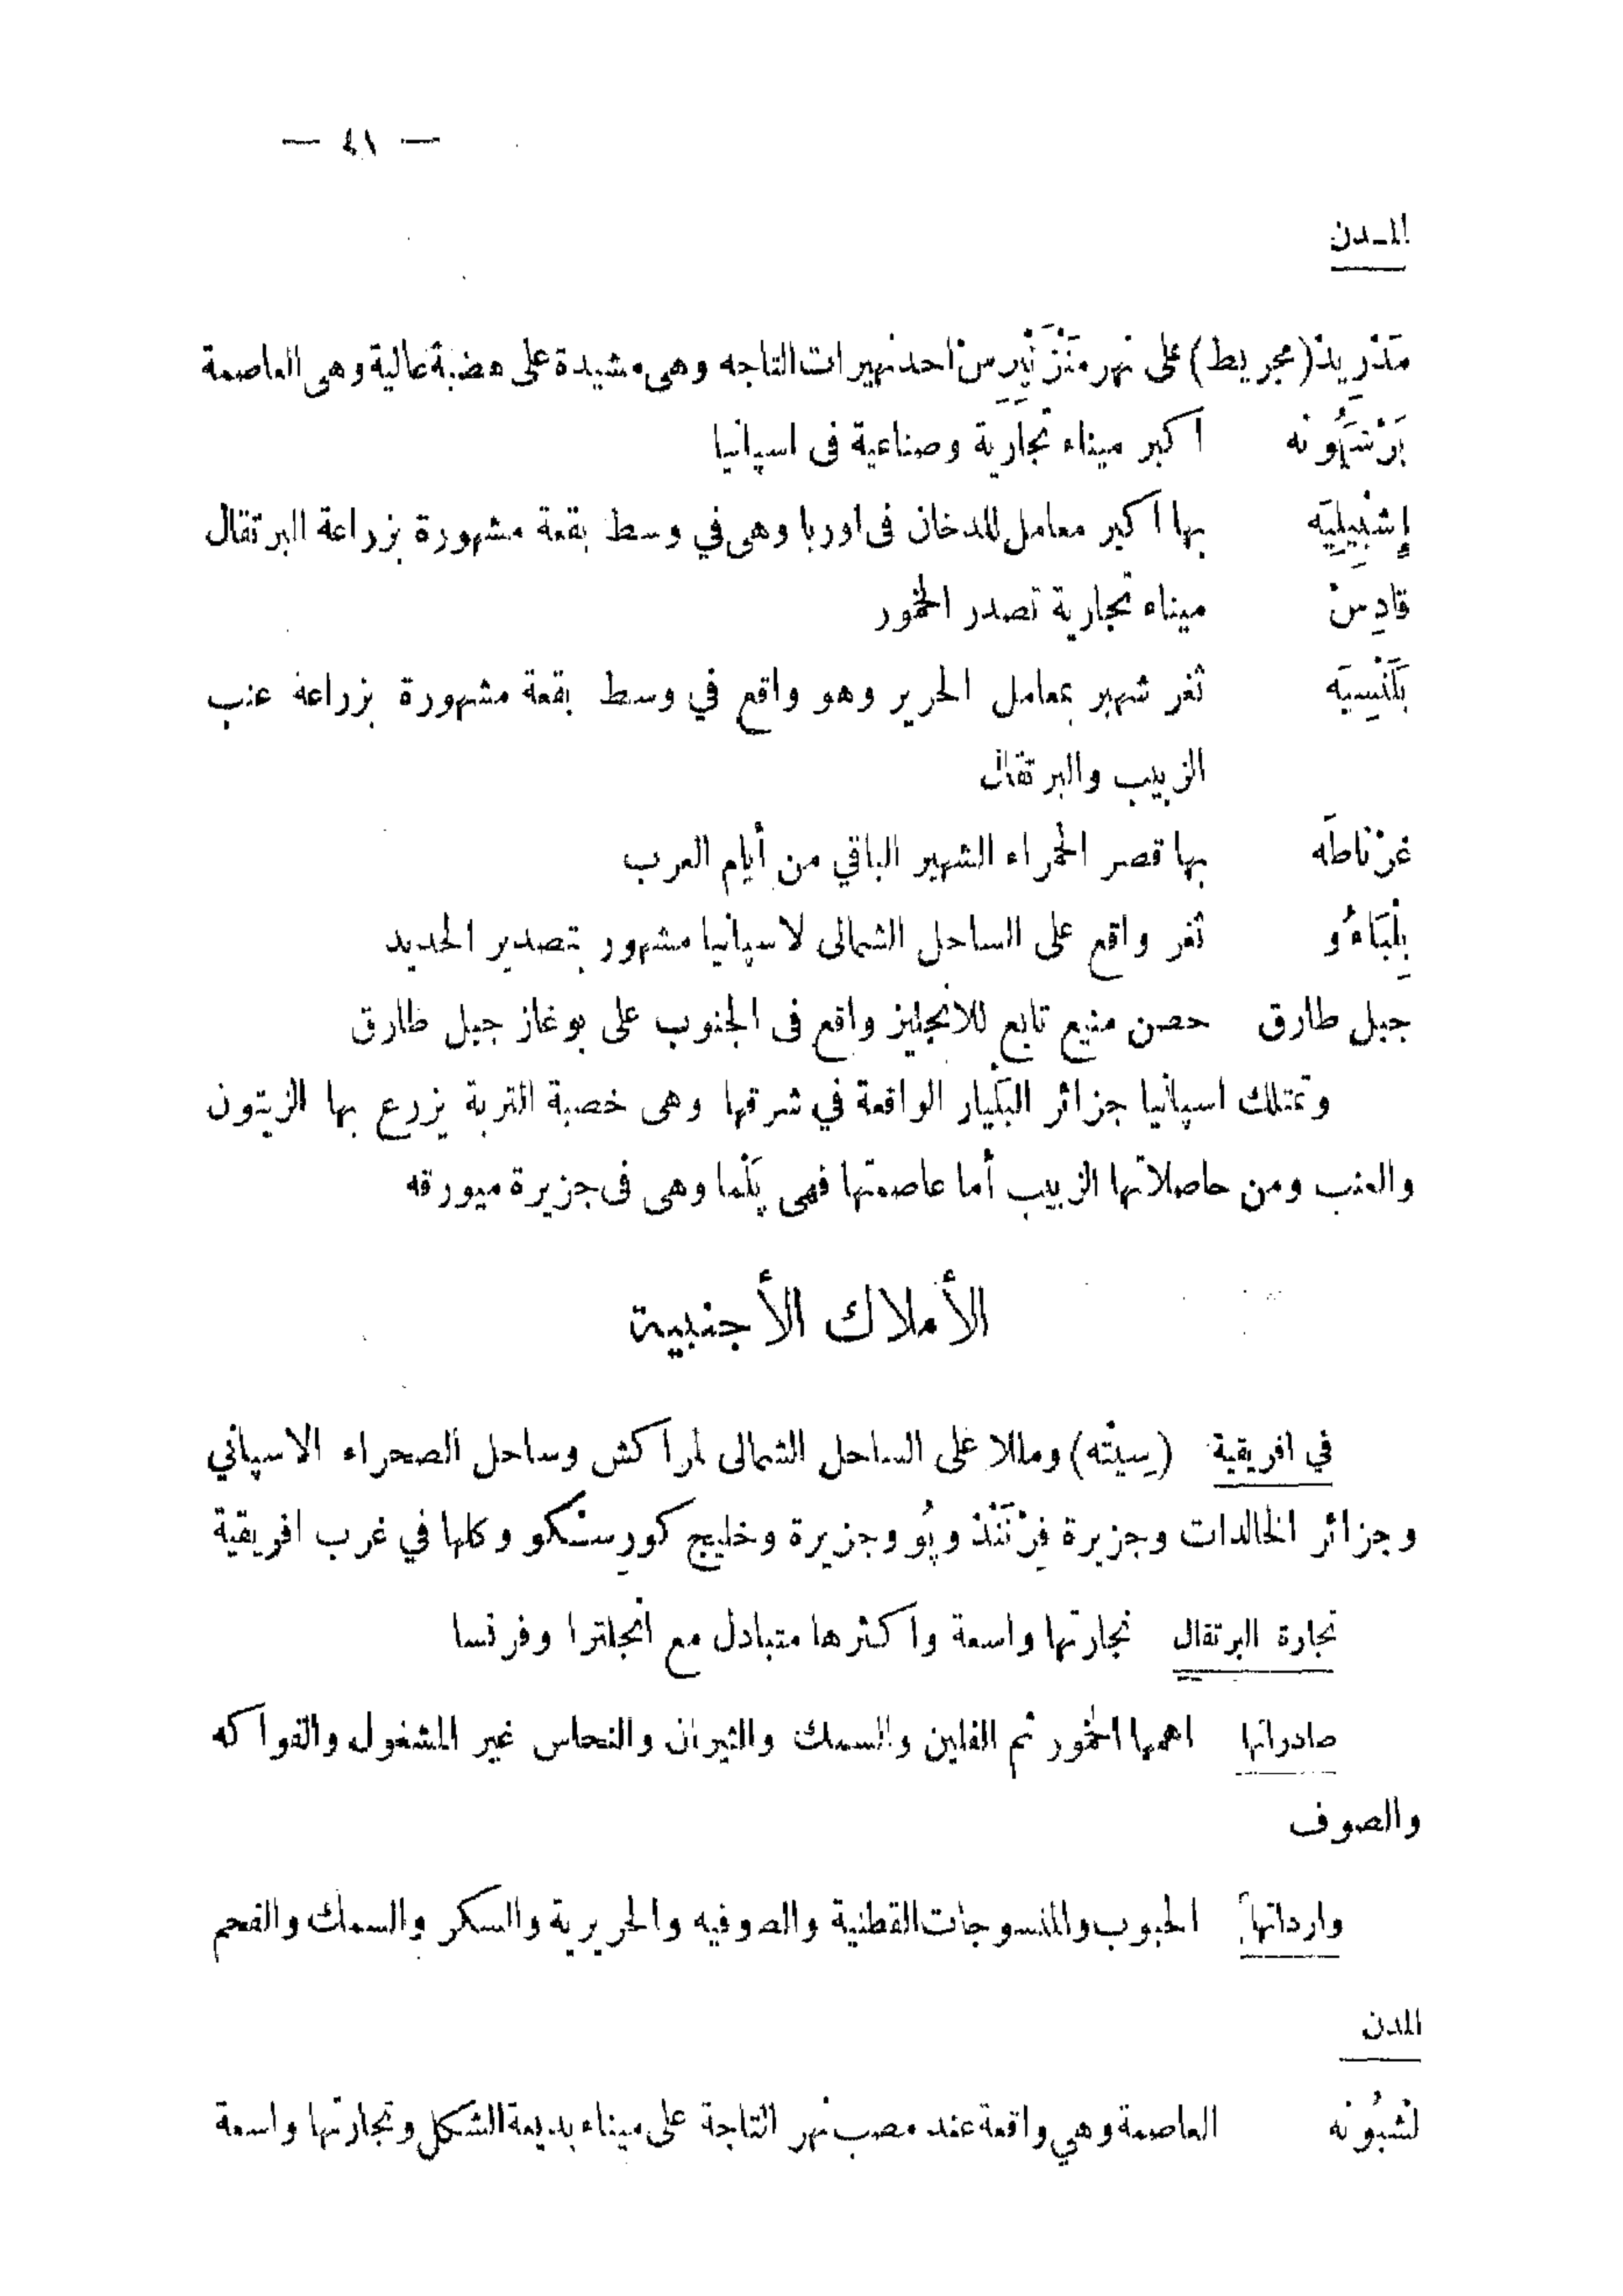 — ٤١ —
المـدن
مَدْرِيدْ (مجريط) على نهر مَنْزَنَيْرِسْ احد نهيرات التاجه وهى مشيدة على هضبة عالية وهى العاصمة
بَرْشَلُونه اكبر ميناء تجارية وصناعية فى اسپانيا
إِشْبِيلِيَه بها اكبر معامل للدخان فى اوربا وهى في وسط بقعة مشهورة بزراعة البرتقال
قادِسْ ميناء تجارية تصدر الخمور
بَلَنْسِيَه ثغر شهير بمعامل الحرير وهو واقع في وسط بقعة مشهورة بزراعة عنب
الزبيب والبرتقال
غرْناطَه بها قصر الحمراء الشهير الباقي من أيام العرب
بِلْبَاءُو ثغر واقع على الساحل الشمالى لاسپانيا مشهور بتصدير الحديد
جبل طارق حصن منيع تابع للانجليز واقع فى الجنوب على بوغاز جبل طارق
وتمتلك اسپانيا جزائر البَلِيار الواقعة في شرقها وهى خصبة التربة يزرع بها الزيتون
والعنب ومن حاصلاتها الزبيب أما عاصمتها فهى پَلْما وهى فى جزيرة ميورقه
الأملاك الأجنبية
في افريقية (سِبْتَه) ومللا على الساحل الشمالى لمراكش وساحل الصحراء الاسپاني
وجزائر الخالدات وجزيرة فِرْنَنْدْ وپُو وجزيرة وخليج كورِسْكو وكلها في غرب افريقية
تجارة البرتقال تجارتها واسعة واكثرها متبادل مع انجلترا وفرنسا
صادراتها اهمها الخمور ثم الفلين والسمك والثيران والنحاس غير المشغول والفواكه
والصوف
وارداتها الحبوب والمنسوجات القطنية والصوفيه والحريرية والسكر والسمك والفحم
المدن
لشبُونه العاصمة وهي واقعة عند مصب نهر التاجة على ميناء بديعة الشكل وتجارتها واسعة